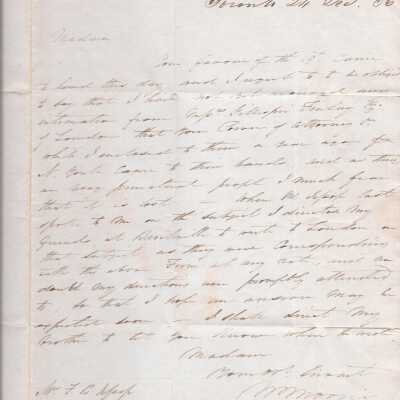 Toronto 24 Dec.
Madam
Your favour of the 19th came
to hand this day and I regret to be obliged
to say that I have not yet received any
intimation from Mess Gillespie
of London that your Power of Attorney &
which I enclosed to them a year ago
N York came to their hands and as they
are very punctual people I much fear
that it is lost - when Mr last
spoke to me on the subject I directed my
friends at to write to London on
that subject as they were corresponding
with the above Firm at any rate, and no
doubt my directions were promptly attended
to, so that I hope an answer may be
expected soon I shall direct my
Brother to let you know when
Madam
Your Ob Servant
Mr F